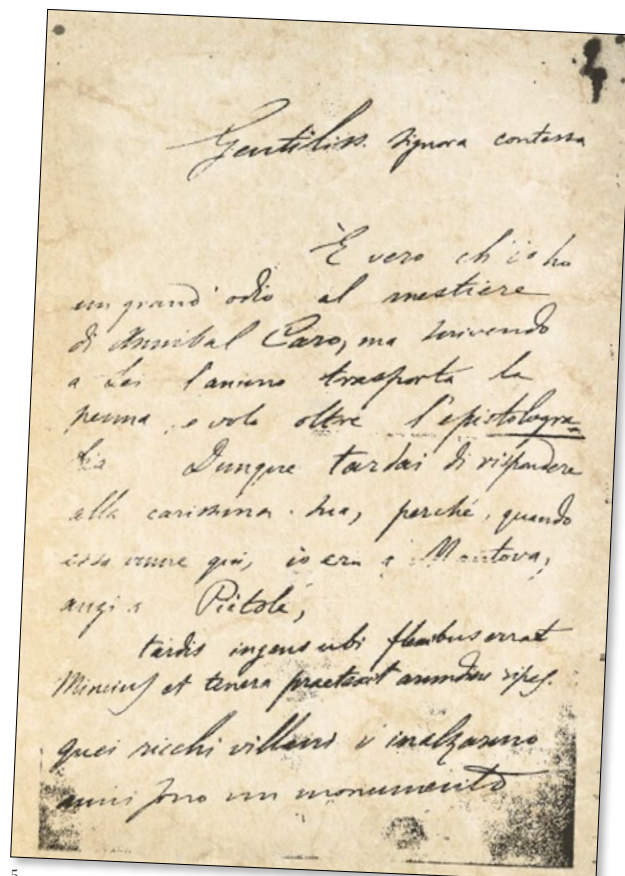 Gentiliss. signora contessa
È vero ch'io ho
un grand' odio al mestiere
di Annibal Caro, ma scrivendo
a Lei l'animo trasporta la
penna e volo oltre l'epistologra-
fia Dunque tardai di rispondere
alla carissima sua, perché, quando
essa venne qui, io era a Mantova,
anzi a Pietole,
tardis ingens ubi flexibus errat
Mincius et tenera praetexit arundine ripas.
quei ricchi villani v'inalzarono
anni sono un monumento
5